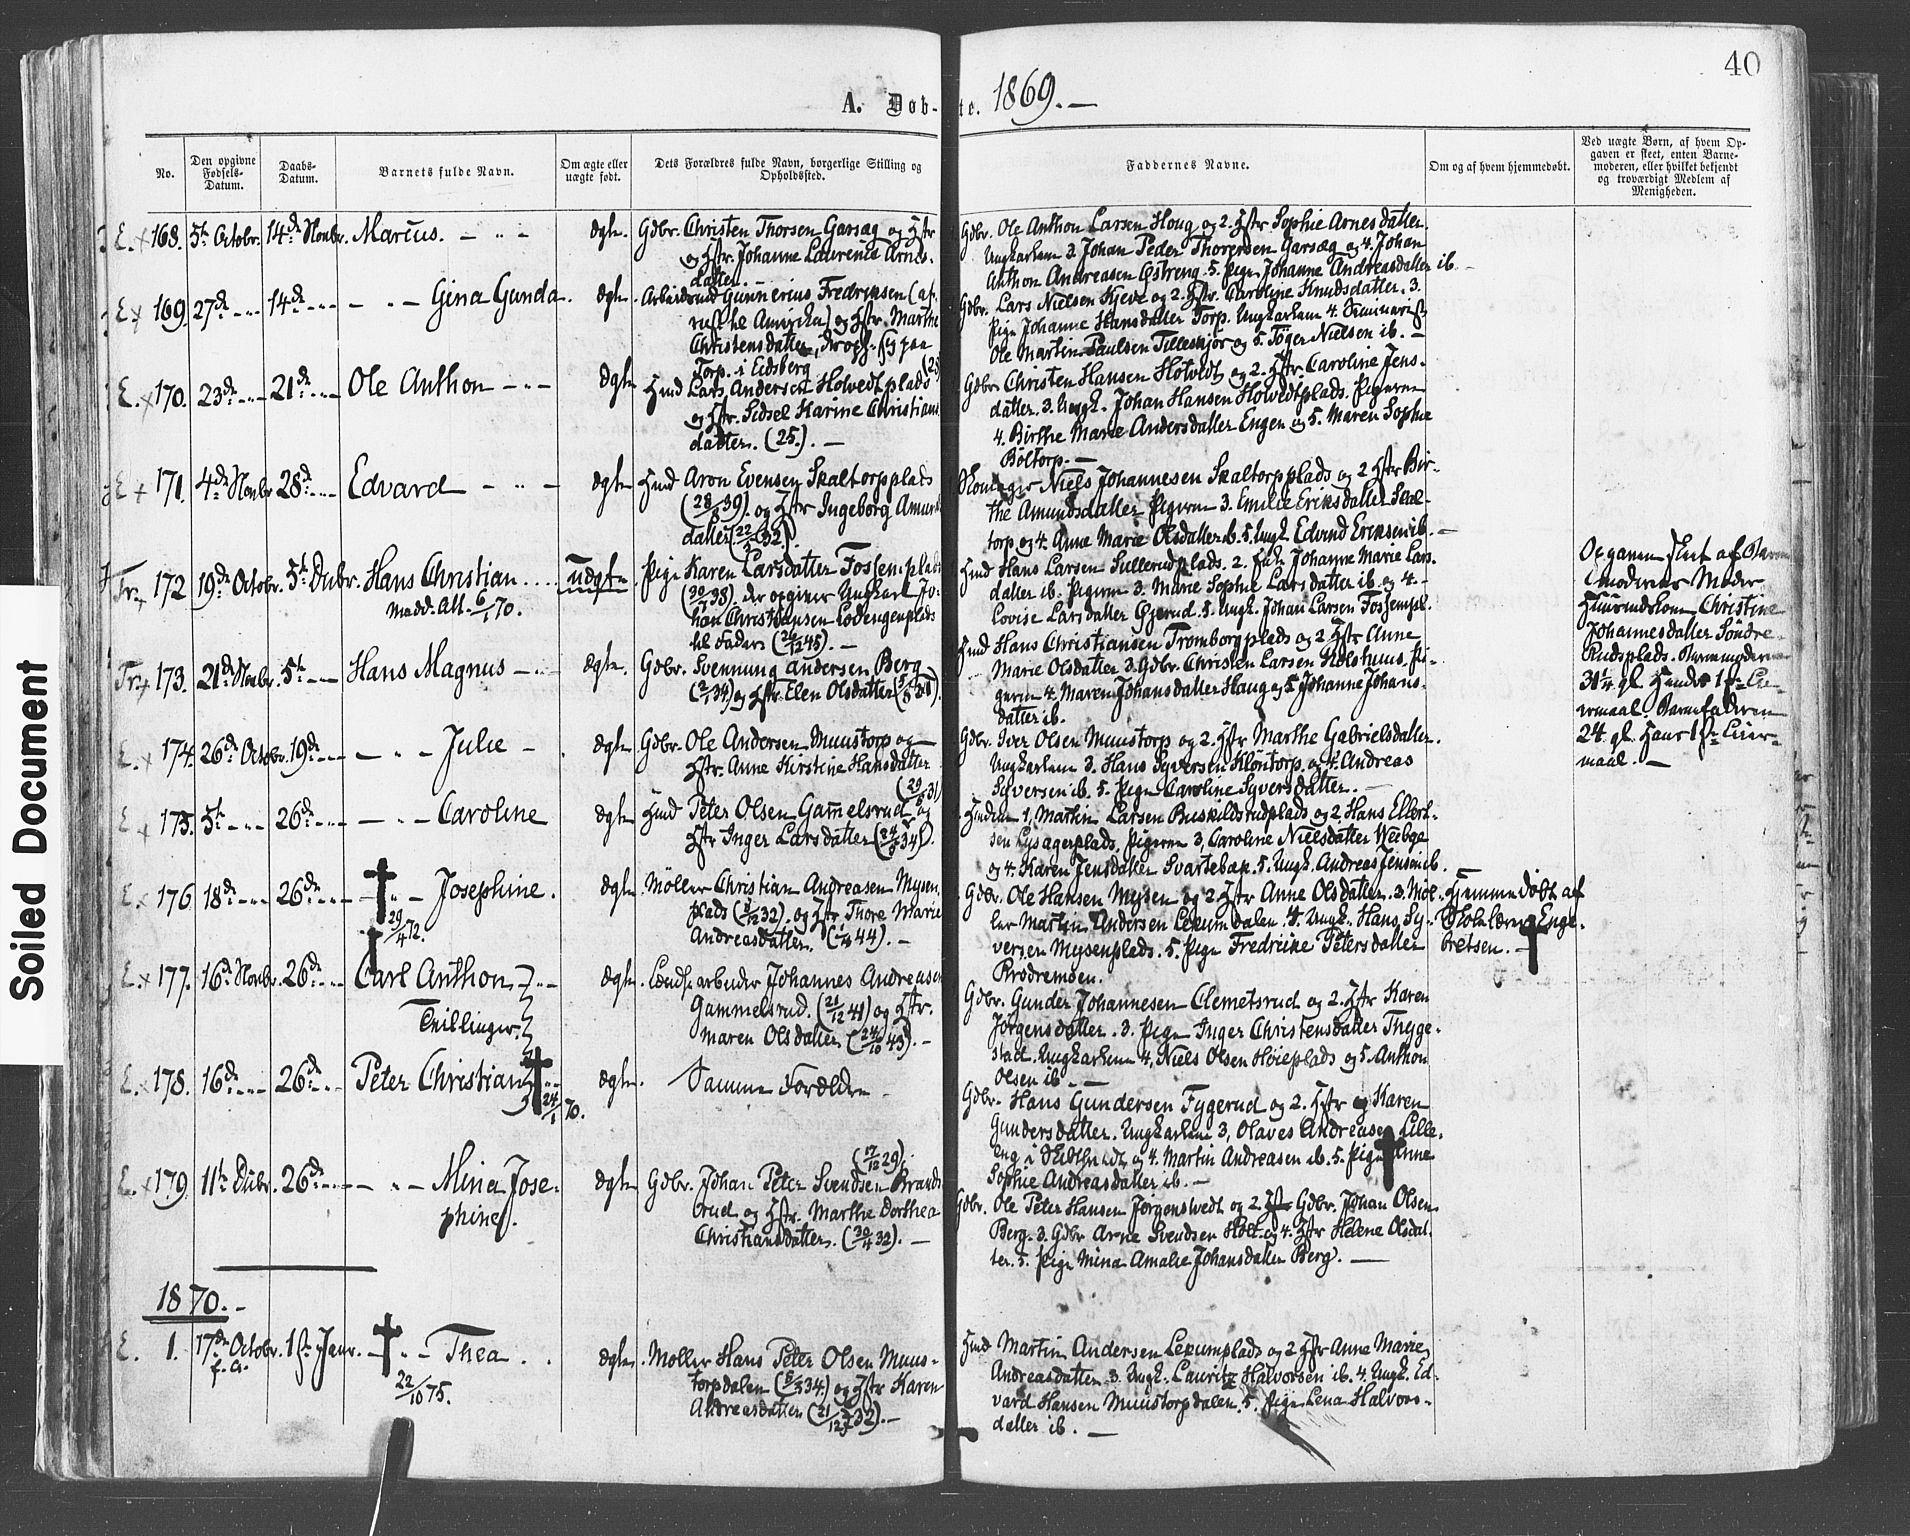 40
A. Døb-te. 1869.—
No.
Den opgivne Fødsels-Datum.
Daabs-Datum.
Barnets fulde Navn.
Om ægte eller uægte født.
Dets Forældres fulde Navn, borgerlige Stilling og Opholdssted.
Faddernes Navne.
Om og af hvem hjemmedøbt.
Ved uægte Børn, af hvem Opgaven er skeet, enten Barnemoderen, eller hvilket bekjendt og troværdigt Medlem af Menigheden.
E. x 168. 5te Octobr. 14de Novbr. Marius. ægte. Gdbr. Christen Thorsen Garsæg og Hstr
og Hstr. Johanne Laurence Arnes-
datter.
Gdbr. Ole Anthon Larsen Houg og 2. Hstr Sophie Arnesdatter.
Ungkarlene 3. Johan Peder Thorersen Garsæg og 4. Johan
Anthon Andreasen Østreng. 5. Pigen Johanne Andreasdatter ib.
E x 169. 27de 14de Gina Gunda. ægte. Arbeidsmd Gunnerius Fredriksen (af-
reist til Amerika) og Hstr. Marthe
Christensdatter, der oph. sig paa
Torp i Eidsberg
Gdbr. Lars Nielsen Kjeve og 2. Hstr. Caroline Knudsdatter. 3.
Pige Johanne Hansdatter Torp. Ungkarlene 4. Seminarist
Ole Martin Paulsen Tilleskjør og 5. Tøger Nielsen ib.
E. x 170. 23de 21de Ole Anthon ægte Hmd Lars Andersen Holvedtplads
og Hstr. Sidsel Karine Christians
datter. (25).
Gdbr Christen Hansen Holvedt og 2. Hstr. Caroline Jens-
datter. 3. Ungk. Johan Hansen Holvedtplads. Pigerne
4. Birthe Marie Andersdatter Engen og 5. Maren Sophie
Boltorp.
E x 171. 4de Novbr 28de Edvard ægte Hmd Aron Evensen Skaltorpplads
(28/8 39). og Hstr Ingeborg Amunds
datter
Niels Johannesen Skaltorpplads og 2 Hstr Bir-
the Amundsdatter Pigerne 3. Emilie Eriksdatter Skal-
torp og 4. Anne Marie Olsdatter ib. 5. Ungk. Edvard Eriksen ib.
Tr. x 172 19de Octobr. 5te Decbr. Hans Christian uægte. Pige Karen Larsdatter Fossemplads
Madd. Att. 6/1 70.
der opgiver Ungkarl Jo-
han Christiansen Lodengenplads
til Fader
Hmd Hans Larsen Sullerudplads. 2. Enk. Johanne Marie Lars-
datter ib. Pigerne 3. Marie Sophie Larsdatter ib og 4.
Lovise Larsdatter Gjerud. 5. Ungk. Johan Larsen Fossempl.
Opgaven skeet af Barne
moderens Moder
Huusmdskone Christine
Johannesdatter Søndre
Rudsplads. Barnemoderen
31 1/4 gl. Hendes 1ste Lei-
ermaal. Barnefaderen
24 gl. Hans 1ste Leier-
maal.
Tr. x 173. 21de Novbr. 5te Hans Magnus ægte. Gdbr. Svennung Andersen Berg
og Hstr. Elen Olsdatter
Hmd Hans Christiansen Tromborgplads og 2 Hstr Anne
Marie Olsdatter 3. Gdbr. Christen Larsen Kolshuus. Pi-
gerne 4. Maren Johansdatter Haug og 5 Johanne Johans-
datter ib.
E. x 174. 26de Octobr. 19de Julie ægte Gdbr. Ole Andersen Muustorp og
Hstr. Anne Kirstine Hansdatter
Gdbr. Iver Olsen Muustorp og 2. Hstr Marthe Gabrielsdatter.
Ungkarlene 3. Hans Syversen Klontorp og 4. Andreas
Syversen ib. 5. Pige Caroline Syversdatter.
E x 175. 5te 26de Caroline ægte Hmd Peter Olsen Gammelsrud og
Hstr Inger Larsdatter
Hmdene 1, Martin Larsen Buskildsrudplads og 2, Hans Ellert-
sen Lysagerplads. Pigerne 3, Caroline Nielsdatter Weebye
og 4. Karen Jensdatter Svartebæk. 5. Ungk. Andreas Jensen ib.
E. x 176 18de 26de Josephine. ægte. Møller Christian Andreasen Mysen
29/4 72.
plads og Hstr Thore Marie
Andreasdatter.
Gdbr. Ole Hansen Mysen og 2 Hstr Anne Olsdatter. 3. Møl-
ler Martin Andersen Lekumdalen. 4. Ungk. Hans Sy-
versen Mysenplads. 5. Pige Fredrikke Petersdatter
Brødremoen.
Hjemmedøbt af
Skolelærer Enge-
bretsen.
E. x 177. 16de Novbr. 26de Carl Anthon ægte. Landsarbeider Johannes Andreasen
Tvillinger.
Gammelsrud. (21/12 41) og Hstr.
Maren Olsdatter (24/10 43).
Gdbr. Gunder Johannesen Clemetsrud og 2. Hstr Karen
Jørgensdatter. 3. Pige Inger Christensdatter Thyge-
stad. Ungkarlene 4, Niels Olsen Høieplads og 5. Anthon
Olsen ib.
E. x 178. 16de 26de Peter Christian ægte. Samme Forældre
24/1 70.
Gdbr. Hans Gundersen Fygerud og 2. Hstr Karen
Gundersdatter. Ungkarlene 3, Olaves Andreasen Lille-
eng og 4. Martin Andreasen ib. 5. Pige Anne
Sophie Andreasdatter ib.
E. x 179 11te Decbr. 26de Mina Jose-
phine.
ægte Gdbr. Johan Peter Svendsen Brands
(17/12 29).
brud og Hstr. Marthe Dorthea
Christiansdatter. (30/4 32).
Gdbr. Ole Peter Hansen Jørgenstvedt og 2. Hstr Gdbr. Johan Olsen
Berg. 3. Gdbr Arne Svendsen Holt og 4. Hstr Helene Olsdat-
ter. 5. Pige Mina Amalie Johansdatter Berg.
1870.
E. 1. 17de Octobr. f. A. 1ste Janr. Thea ægte. Møller Hans Peter Olsen Muus-
22/10 75.
torpdalen og Hstr Karen
Andreasdatter
Hmd Martin Andersen Lekumplads og 2 Hstr Anne Marie
Andreasdatter 3. Ungk. Lauritz Halvorsen ib. 4. Ungk. Ed-
vard Hansen Muustorpdalen. 5. Pige Lena Halvors-
datter ib.
Soiled Document